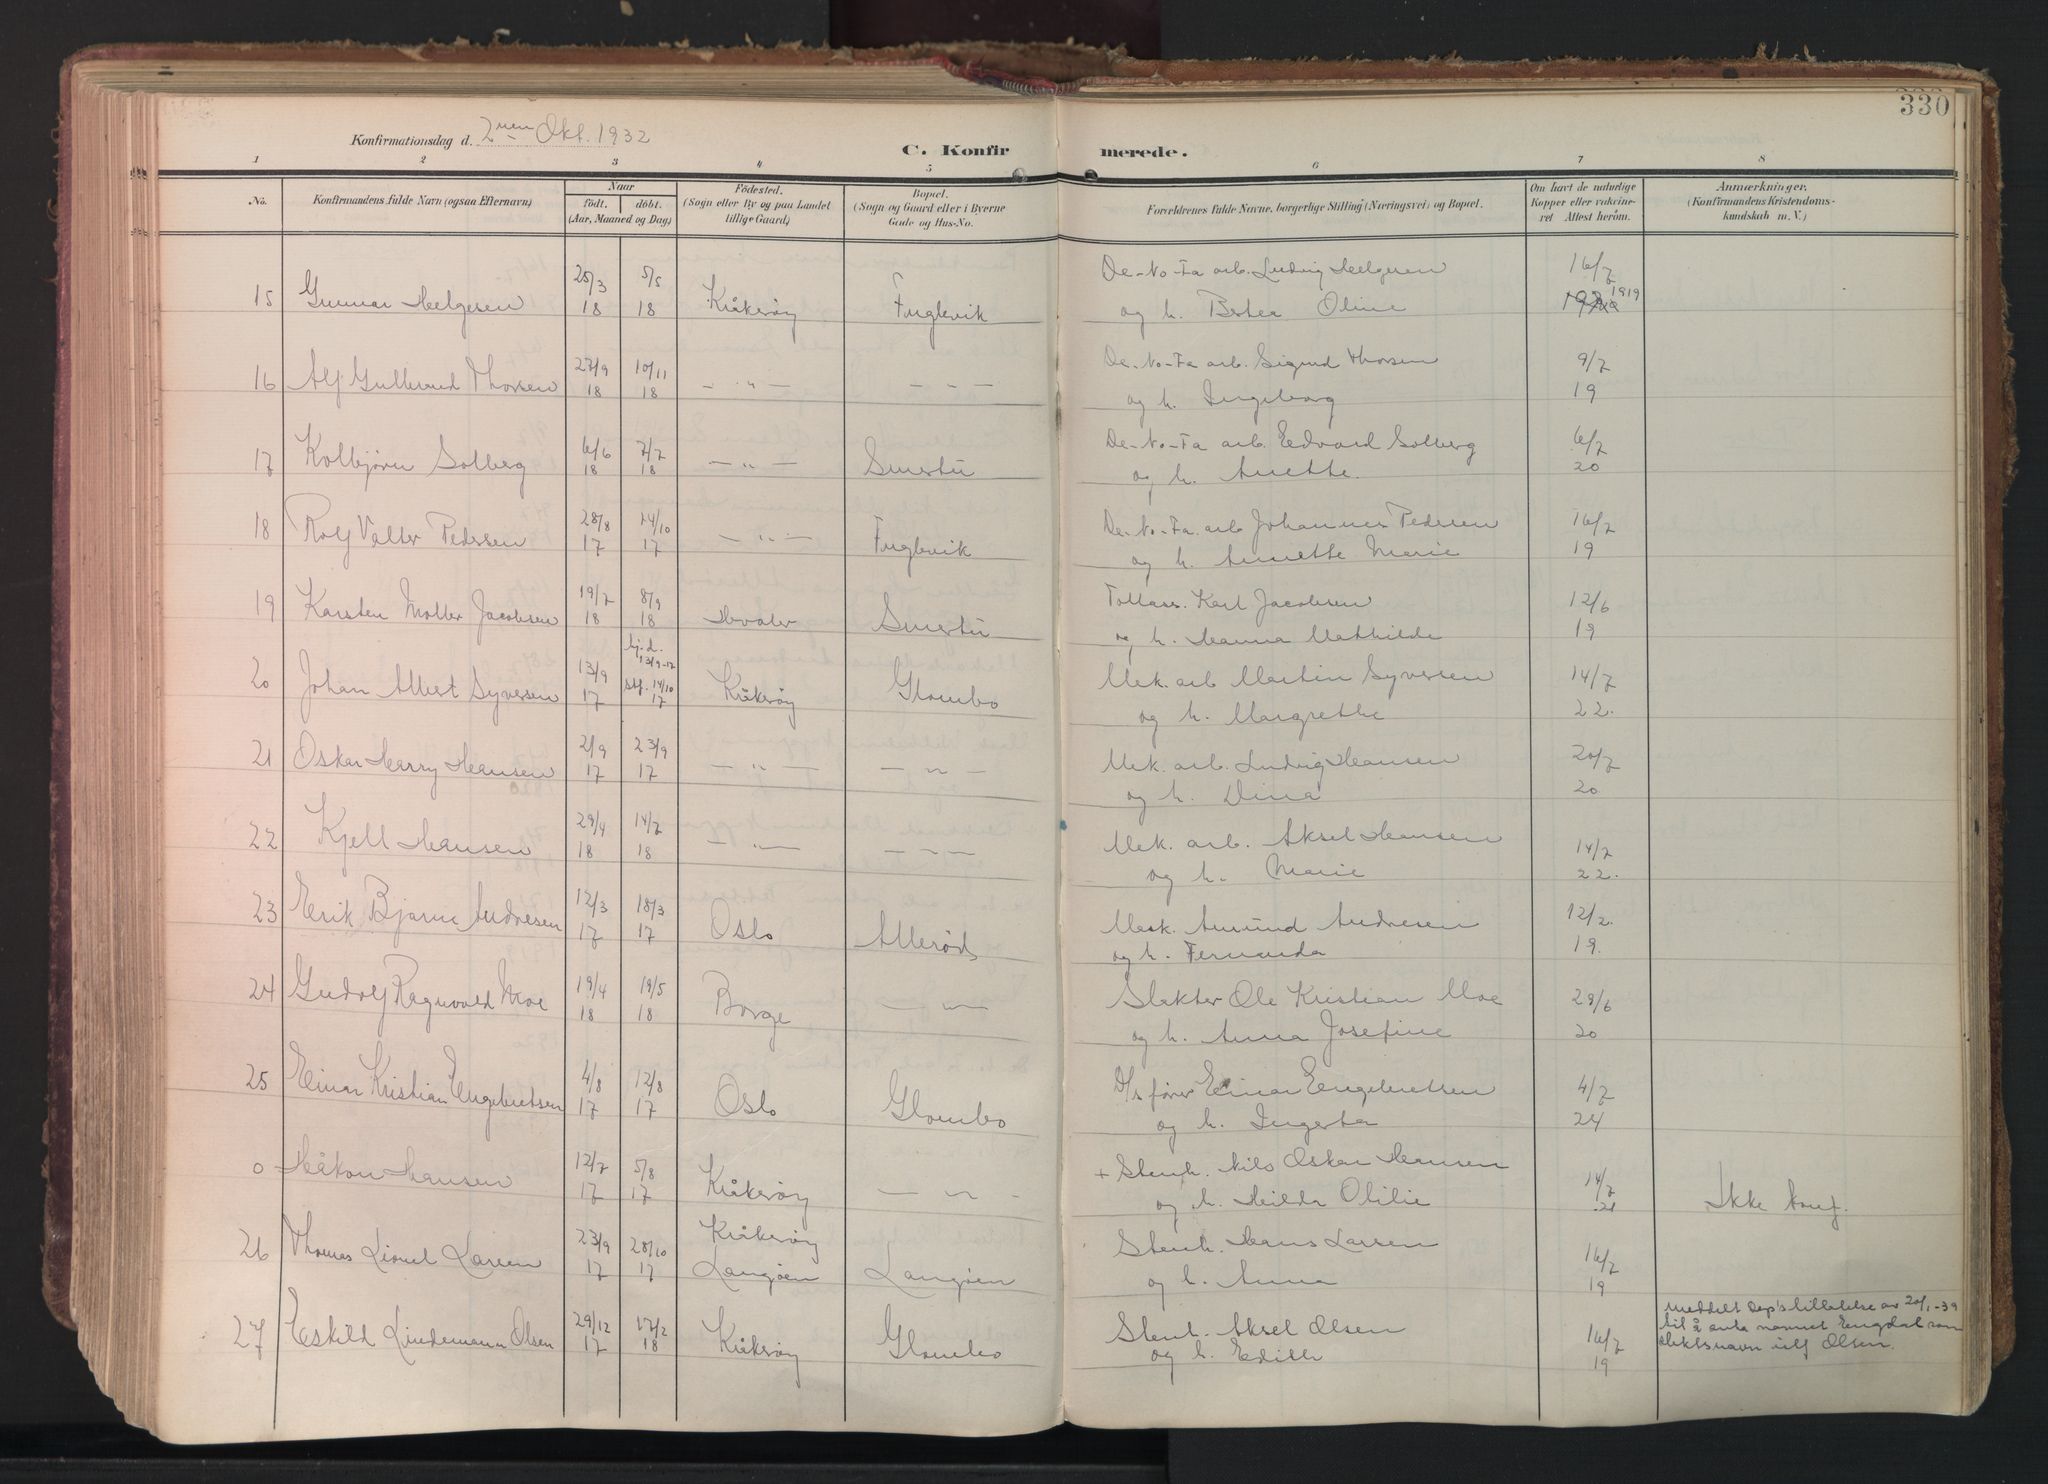 330
Konfirmationsdag d. 2nen Okt. 1932
C. Konfirmerede.
1 2 3 4 5 6 7 8
No.
Konfirmandens fulde Navn (ogsaa Efternavn)
Naar
födt. döbt.
(Aar, Maaned og Dag)
Födested.
(Sogn eller By og paa Landet
tillige Gaard.)
Bopæl.
(Sogn og Gaard eller i Byerne
Gade og Hus-No.
Forældrenes fulde Navne, borgerlige Stilling (Næringsvei) og Bopæl.
Om havt de naturlige
Kopper eller vakcine-
ret Attest herom.
Anmærkninger.
(Konfirmandens Kristendoms-
kundskab m. V.)
15 Gunnar Helgesen 25/3 18 5/5 18 Kråkerøy Fuglevik De-No-Fa arb. Ludvig Helgesen 16/7
og h. Berthea Oline 1919
16 Alf Gulbrand Thorsen 27/9 18 10/11 18 — " — — " — De-No-Fa arb. Sigurd Thorsen 9/7
og h. Ingeborg 19
17 Kolbjørn Solberg 6/6 18 7/7 18 — " — Smertu De-No-Fa arb. Edvard Solberg 6/7
og h. Anette. 20
18 Rolf Valter Pedersen 28/8 17 14/10 17 — " — Fuglevik De-No-Fa arb. Johannes Pedersen 16/7
og h. Annette Marie 19
19 Karsten Møller Jacobsen 19/7 18 8/9 18 Hvaler Smertu Tollass. Karl Jacobsen 12/6
og h. Hanna Mathilde 19
20 Johan Albert Syversen 13/9 17 hj.d. 13/9-17 stf. 14/10 17 Kråkerøy Glombo Mek. arb. Martin Syversen 14/7
og h. Margrethe 22.
21 Oskar Harry Hansen 2/9 17 23/9 17 — " — — " — Mek. arb. Ludvig Hansen 20/7
og h. Dina 20
22 Kjell Hansen 29/4 18 14/7 18 — " — — " — Mek. arb. Aksel Hansen 14/7
og h. Marie 22.
23 Erik Bjarne Andresen 12/3 17 18/3 17 Oslo Allerød Mask. Amund Andresen 12/2.
og h. Fernanda 19.
24 Gudolf Ragnvald Moe 19/4 18 19/5 18 Borge — " — Slakter Ole Kristian Moe 29/6
og h. Anna Josefine 20
25 Einar Kristian Engebretsen 4/8 17 12/8 17 Oslo Glombo D/s fører Einar Engebretsen 4/7
og h. Ingerta 24
0 Håkon Hansen 12/7 17 5/8 17 Kråkerøy — " — + Stenh. Nils Oskar Hansen 14/7
og h. Hilda Otilie 21 Ikke konf.
26 Thomas Lionel Larsen 23/9 17 28/10 17 Kråkerøy Langøen Langøen Stenh. Hans Larsen 16/7
og h. Anna 19
27 Eskild Lindemann Olsen 29/12 17 17/2 18 Kråkerøy Glombo Stenh. Aksel Olsen 16/7
og h. Edith 19
meddelt Dep's tillatelse av 20/1-39
til å anta navnet Engdal som
slektsnavn istf Olsen.